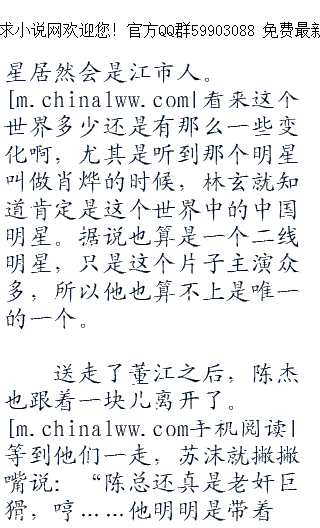 求小说网欢迎您！官方QQ群59903088 免费最新
星居然会是江市人。
[m.chinalww.com|看来这个
世界多少还是有那么一些变
化啊，尤其是听到那个明星
叫做肖烨的时候，林玄就知
道肯定是这个世界中的中国
明星。据说也算是一个二线
明星，只是这个片子主演众
多，所以他也算不上是唯一
的一个。
送走了董江之后，陈杰
也跟着一块儿离开了。
[m.chinalww.com手机阅读|
等到他们一走，苏沫就撇撇
嘴说：“陈总还真是老奸巨
猾，哼……他明明是带着